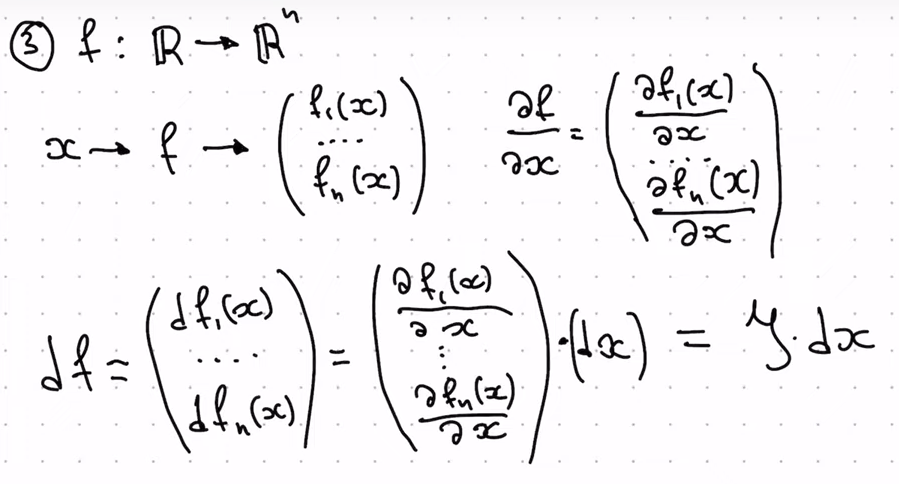 ③ f : ℝ → ℝⁿ
x → f → (f₁(x) .... fₙ(x)) ∂f/∂x = (∂f₁(x)/∂x ..... ∂fₙ(x)/∂x)
df = (df₁(x) .... dfₙ(x)) = (∂f₁(x)/∂x ⋮ ∂fₙ(x)/∂x) · (dx) = J · dx